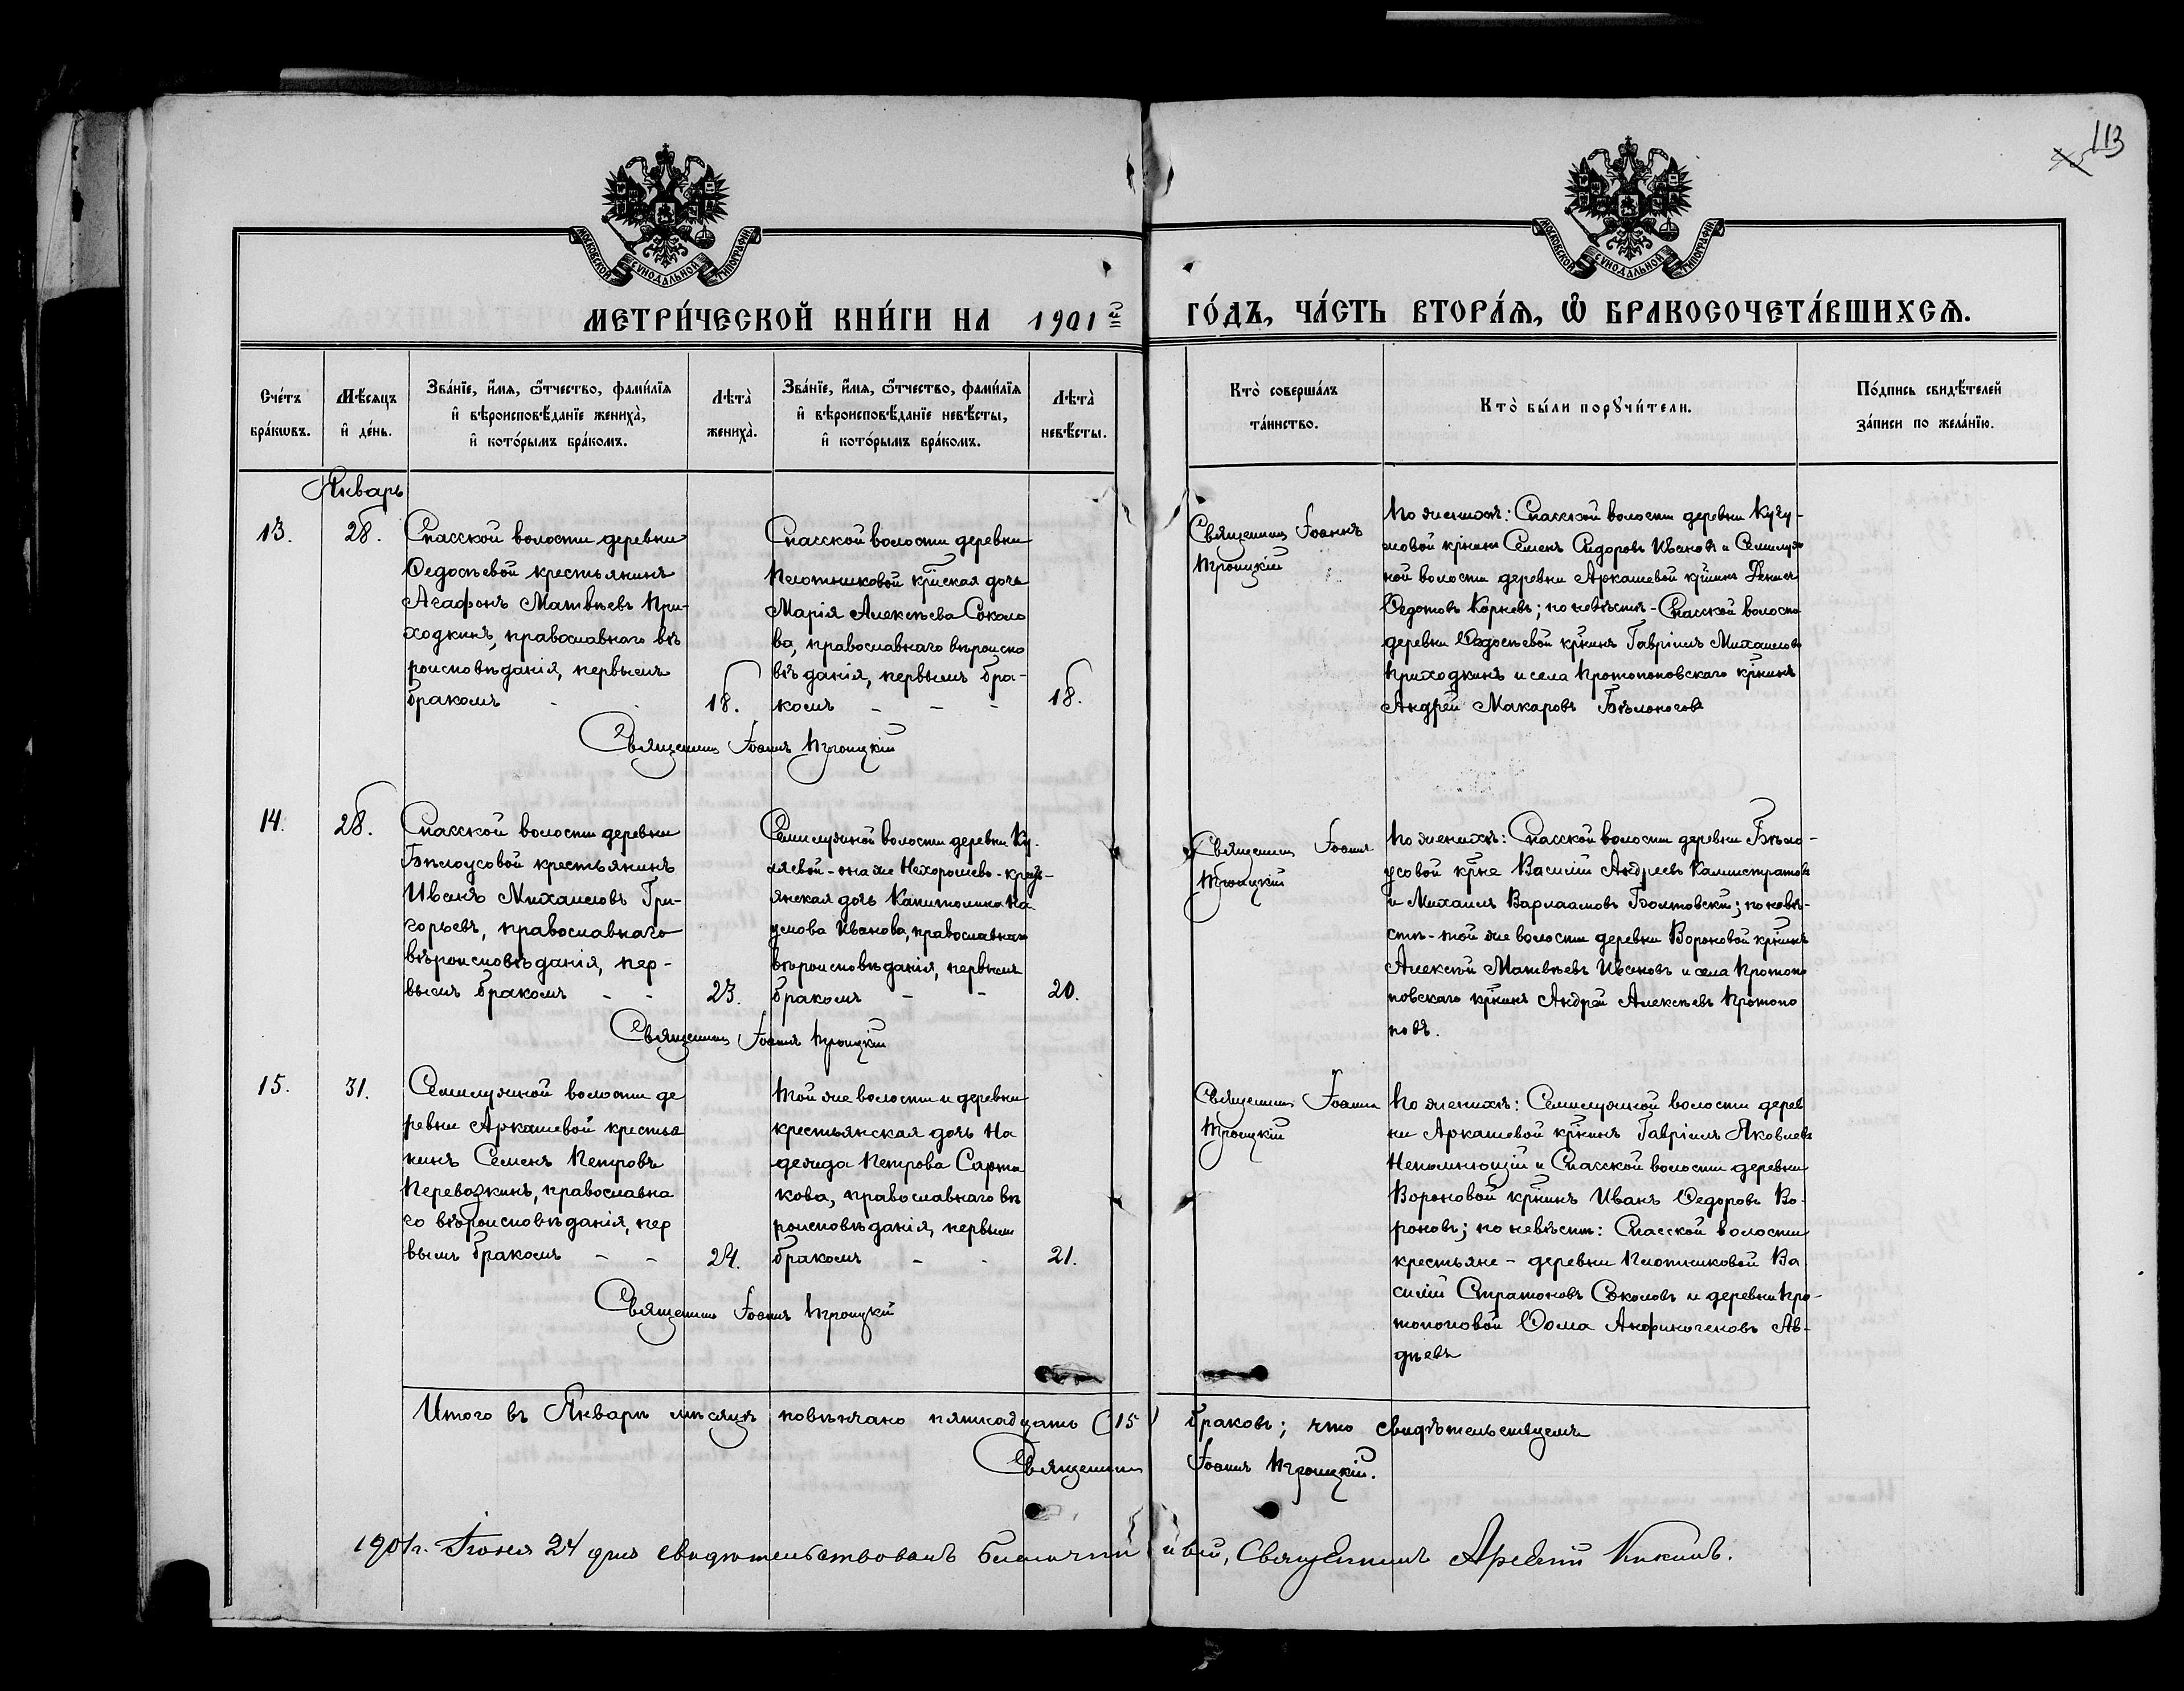 113
МОСКОВСКОЙ СѴНОДАЛЬНОЙ ТИПОГРАФІИ.
МОСКОВСКОЙ СѴНОДАЛЬНОЙ ТИПОГРАФІИ.
МЕТРИ́ЧЕСКОЙ КНИ́ГИ НА 1901 ГО́ДЪ, ЧА́СТЬ ВТОРА́Ѧ, Ѡ҆ БРАКОСОЧЕТА́ВШИХСѦ.
Сче́тъ
бра́кѡвъ.
Мѣ́сяцъ
и҆ де́нь.
Зва́нїе, и҆́мя, ѻ҆́тчество, фами́лїя
и҆ вѣроисповѣ́данїе жениха̀,
и҆ кото́рымъ бра́комъ.
Лѣта̀
жениха̀.
Зва́нїе, и҆́мя, ѻ҆́тчество, фами́лїя
и҆ вѣроисповѣ́данїе невѣ́сты,
и҆ кото́рымъ бра́комъ.
Лѣта̀
невѣ́сты.
Кто̀ соверша́лъ
та́инство.
Кто̀ бы́ли порꙋчи́тели.
По́дпись свидѣ́телей
за́писи по жела́нїю.
Январь
13.
28.
Спасской волости деревни
Ѳедосѣевой крестьянинъ
Агафонъ Матвѣевъ При-
ходкинъ, православнаго вѣ
роисповѣданія, первымъ
бракомъ - -
18.
Спасской волости деревни
Плотниковой кр-ская дочь
Марія Алексѣева Соколо
ва, православнаго вѣроиспо
вѣданія, первымъ бра-
комъ - - -
18.
Священникъ Іоаннъ Троицкій
Священникъ Іоаннъ
Троицкій
По женихѣ: Спасской волости деревни Кугу-
мовой кр-нинъ Семенъ Сидоровъ Ивановъ и Семилуж
ной волости деревни Аркашевой кр-нинъ Денисъ
Ѳедотовъ Корневъ; по невѣстѣ - Спасской волости
деревни Ѳедосѣевой кр-нинъ Гавріилъ Михаиловъ
Приходкинъ и села Протопоповскаго кр-нинъ
Андрей Макаровъ Бѣлоноговъ
14.
28.
Спасской волости деревни
Бѣлоусовой крестьянинъ
Иванъ Михаиловъ Гри-
горьевъ, православнаго
вѣроисповѣданія, пер-
вымъ бракомъ - -
23.
Семилужной волости деревни Ку-
лявой - она же Нехорошево - кресть-
янская дочь Капитолина На
умова Иванова, православнаго
вѣроисповѣданія, первымъ
бракомъ - -
20.
Священникъ Іоаннъ Троицкій
Священникъ Іоаннъ
Троицкій
По женихѣ: Спасской волости деревни Бѣло-
усовой кр-не Василій Андреевъ Каллистратовъ
и Михаилъ Варлаамовъ Болтовскій; по невѣ-
стѣ - той же волости деревни Вороновой кр-нинъ
Алексѣй Матвѣевъ Ивановъ и села Протопо
повскаго кр-нинъ Андрей Алексѣевъ Протопо
повъ.
15.
31.
Семилужной волости де
ревни Аркашевой крестья
нинъ Семенъ Петровъ
Перевозкинъ, православна
го вѣроисповѣданія, пер
вымъ бракомъ - -
24.
Той же волости и деревни
крестьянская дочь На
дежда Петрова Сарта
кова, православнаго вѣ
роисповѣданія, первымъ
бракомъ - -
21.
Священникъ Іоаннъ Троицкій
Священникъ Іоаннъ
Троицкій
По женихѣ: Семилужной волости дерев
ни Аркашевой кр-нинъ Гавріилъ Яковлевъ
Непомнющій и Спасской волости деревни
Вороновой кр-нинъ Иванъ Ѳедоровъ Во-
роновъ; по невѣстѣ: Спасской волости
крестьяне - деревни Плотниковой Ва
силій Стратоновъ Соколовъ и деревни Про-
топоповой Ѳома Анфиногеновъ Ав-
дѣевъ
Итого въ Январѣ мѣсяцѣ повѣнчано пятнадцать (15) браковъ; что свидѣтельствуемъ
Священникъ Іоаннъ Троицкій.
1901 г. Іюня 24 дня свидѣтельствовалъ Благочинный, Священникъ Арсеній Кикинъ.